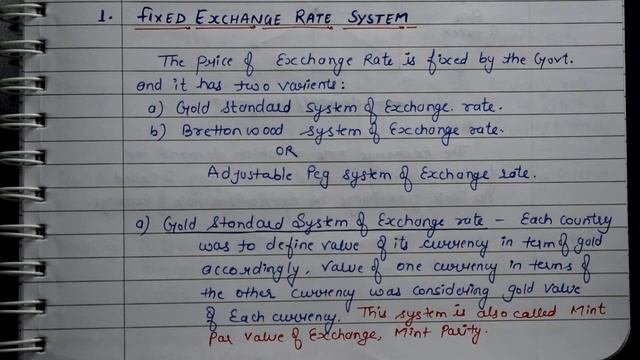 1. FIXED EXCHANGE RATE SYSTEM
The price of Exchange Rate is fixed by the Govt.
and it has two varients:
a) Gold Standard system of Exchange. rate.
b) Bretton wood system of Exchange rate.
OR
Adjustable Peg system of Exchange rate.
a) Gold Standard System of Exchange rate - Each country
was to define value of its currency in term of gold
accordingly, value of one currency in terms of
the other currency was considering gold value
of Each currency. This system is also called Mint
Par value of Exchange, Mint Parity.